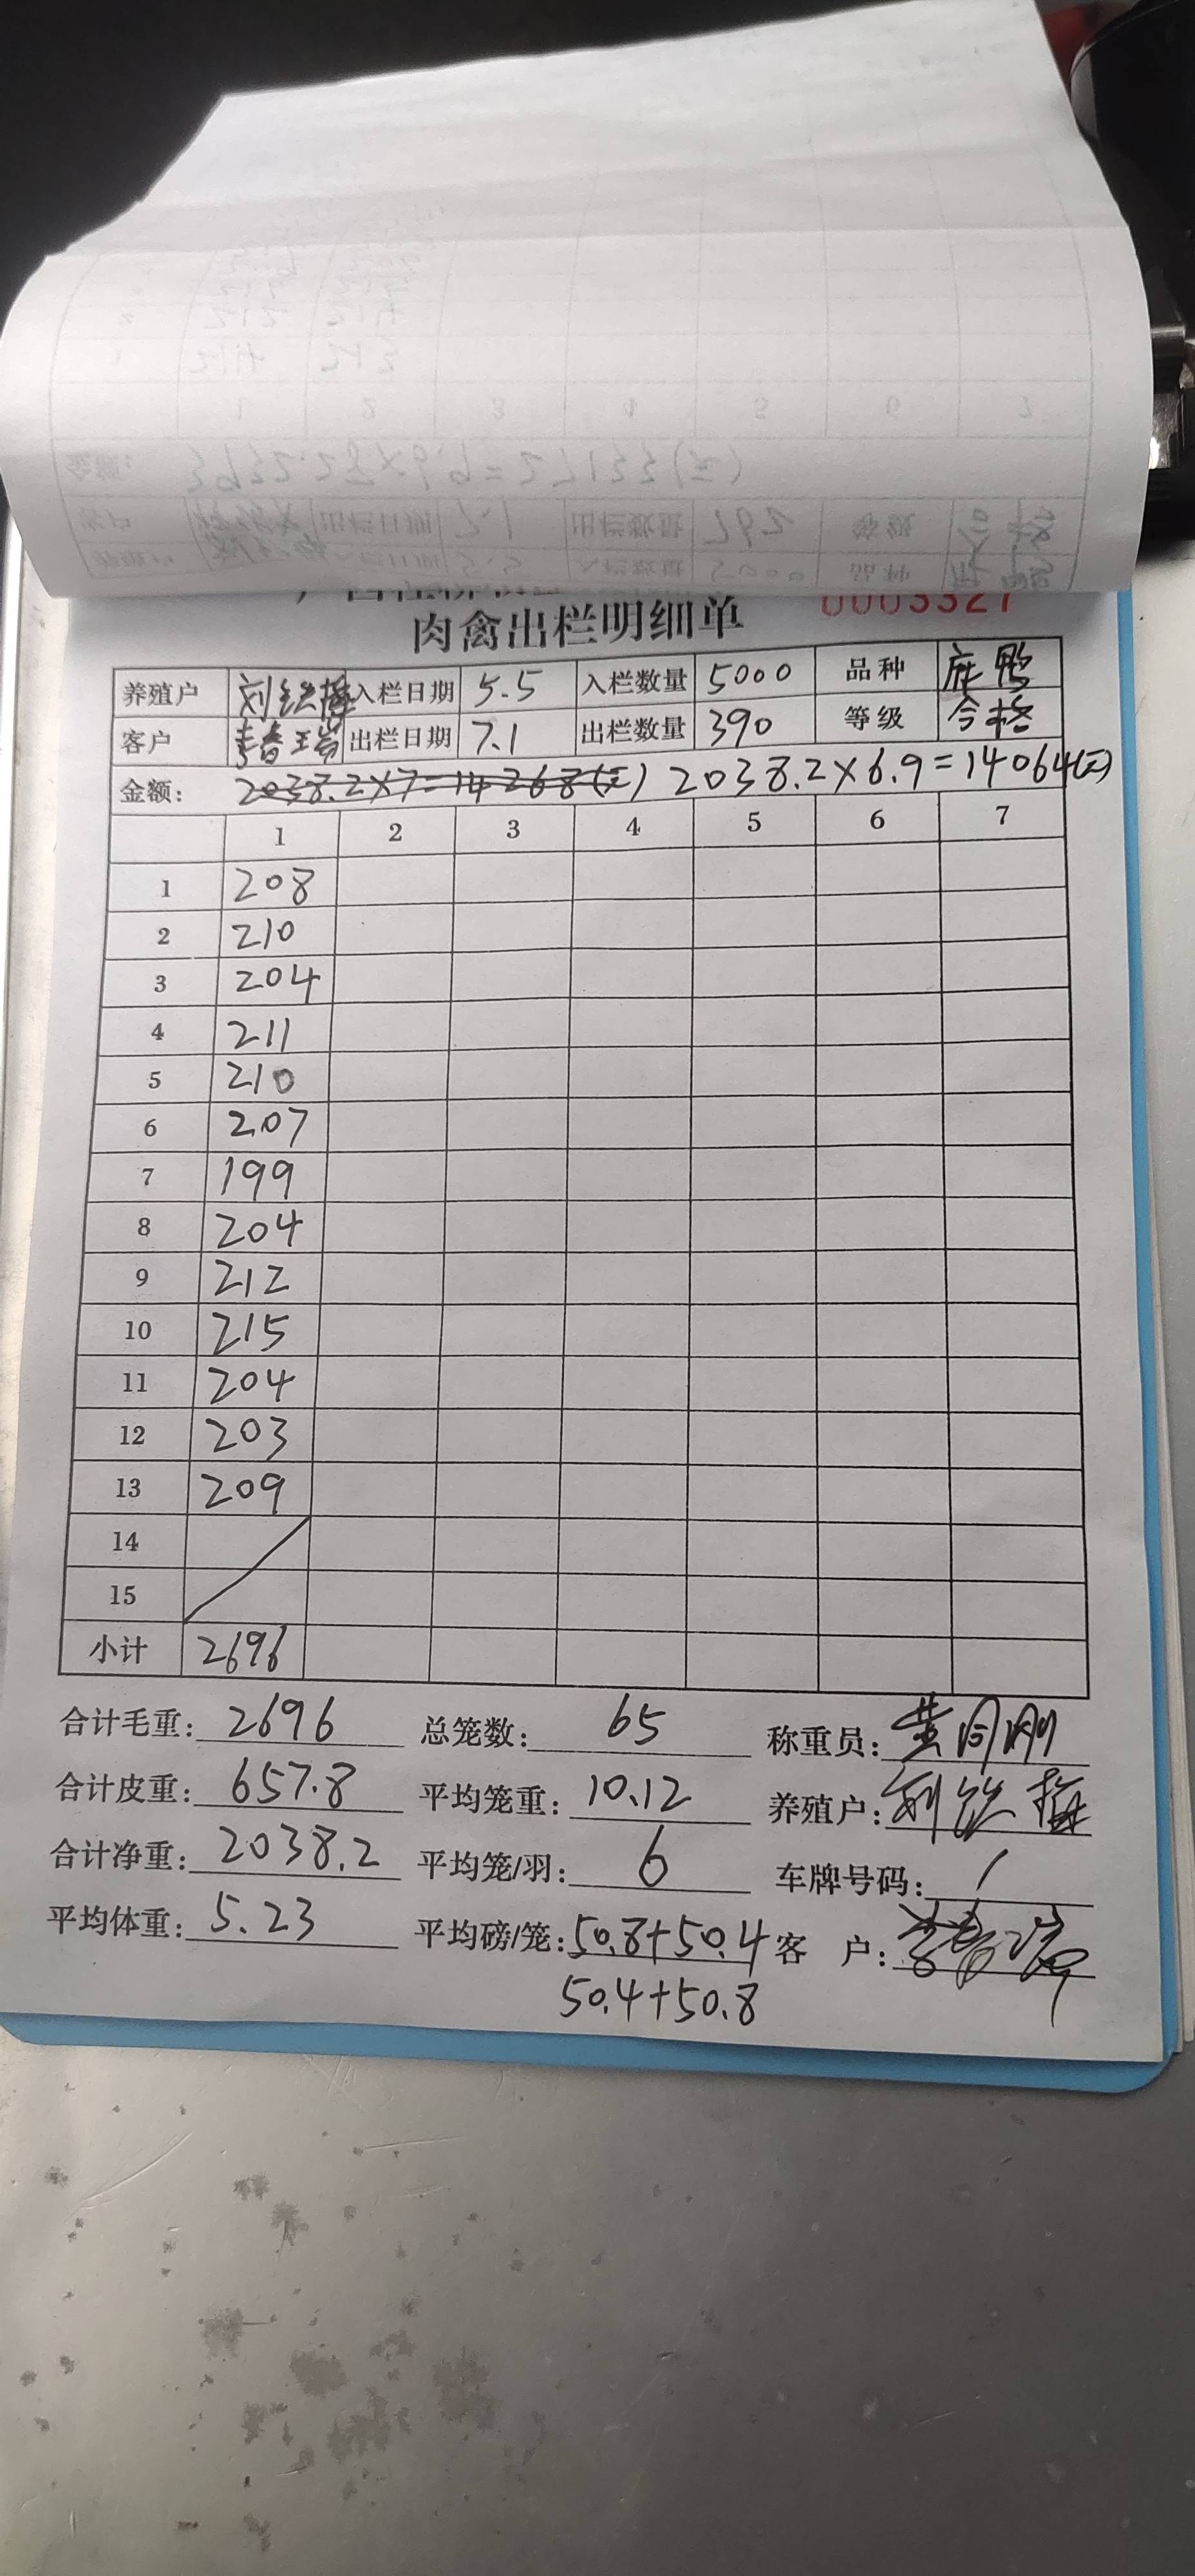 0003327
肉禽出栏明细单
养殖户 入栏日期 5.5 入栏数量 5000 品种 麻鸭
客户 出栏日期 7.1 出栏数量 390 等级 合格
金额: 2038.2×7=14268(元) 2038.2×6.9=14064(元)
1 2 3 4 5 6 7
1 208
2 210
3 204
4 211
5 210
6 207
7 199
8 204
9 212
10 215
11 204
12 203
13 209
14
15
小计 2696
合计毛重: 2696 总笼数: 65 称重员:
合计皮重: 657.8 平均笼重: 10.12 养殖户:
合计净重: 2038.2 平均笼/羽: 6 车牌号码: /
平均体重: 5.23 平均磅/笼: 50.8+50.4 客 户:
50.4+50.8